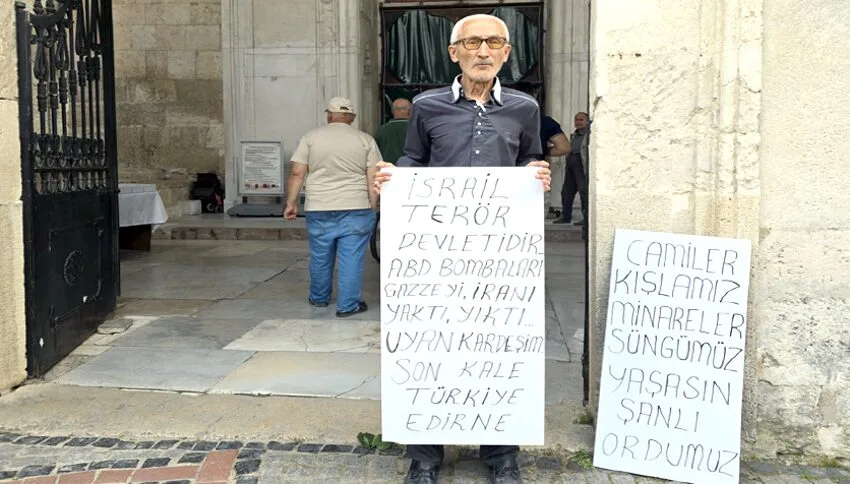 İSRAİL
TERÖR
DEVLETİDİR.
ABD BOMBALARI
GAZZEYİ, İRANI
YAKTI, YIKTI...
UYAN KARDEŞİM.
SON KALE
TÜRKİYE
EDİRNE
CAMİLER
KIŞLAMIZ
MİNARELER
SÜNGÜMÜZ
YAŞASIN
ŞANLI
ORDUMUZ